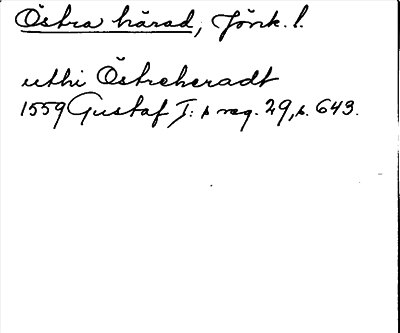 Östra härad, Jönk. l.
uthi Östreheradt
1559 Gustaf I:s reg. 29, s. 643.